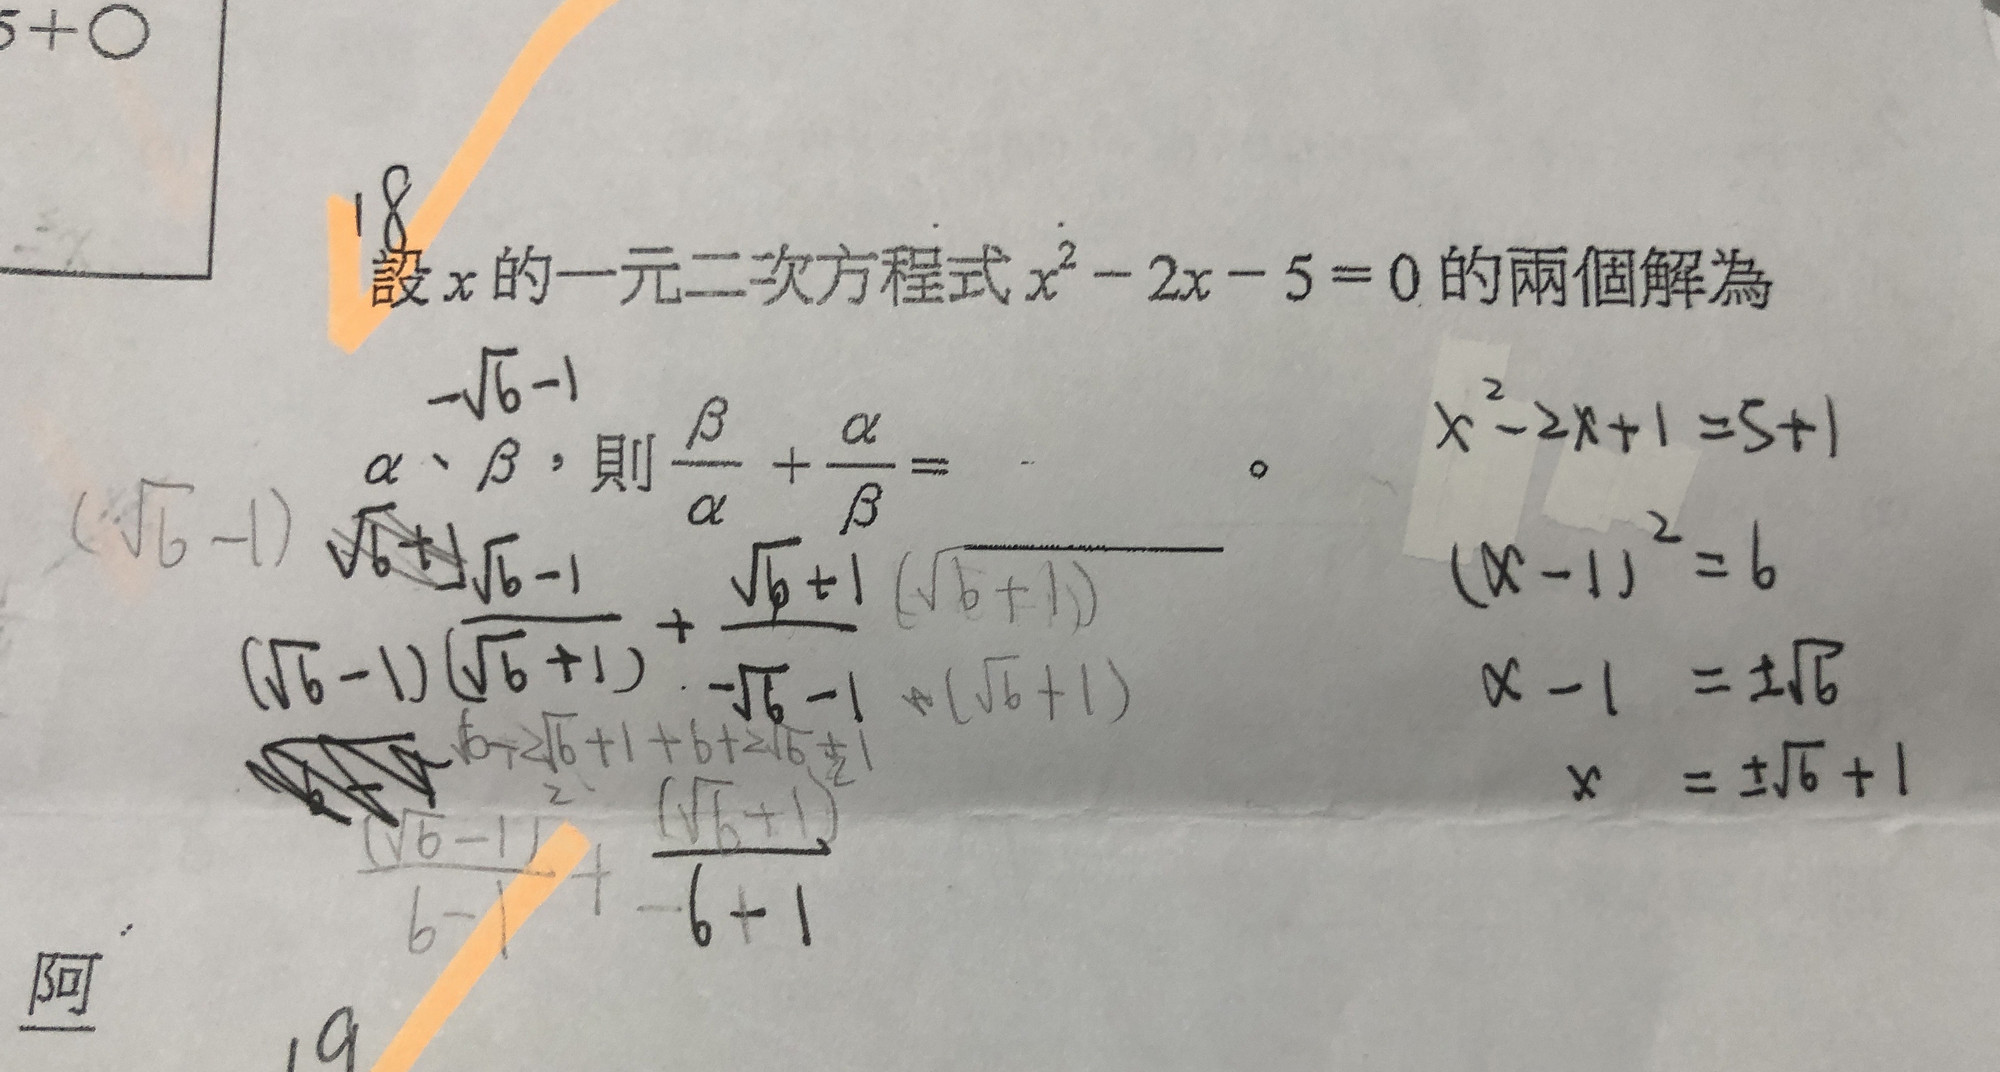 5+○
18
設 x 的一元二次方程式 x² − 2x − 5 = 0 的兩個解為
-√6-1
α、β，則 β/α + α/β = 。
x²-2x+1=5+1
(√6-1) √6+1 √6-1 / (√6-1)(√6+1) + √6+1 (√6+1) / -√6-1 (√6+1)
(x-1)²=6
x-1 =±√6
-2√6+1+6+2√6+1
x =±√6+1
(√6-1)² / 6-1 + (√6+1)² / -6+1
阿
19